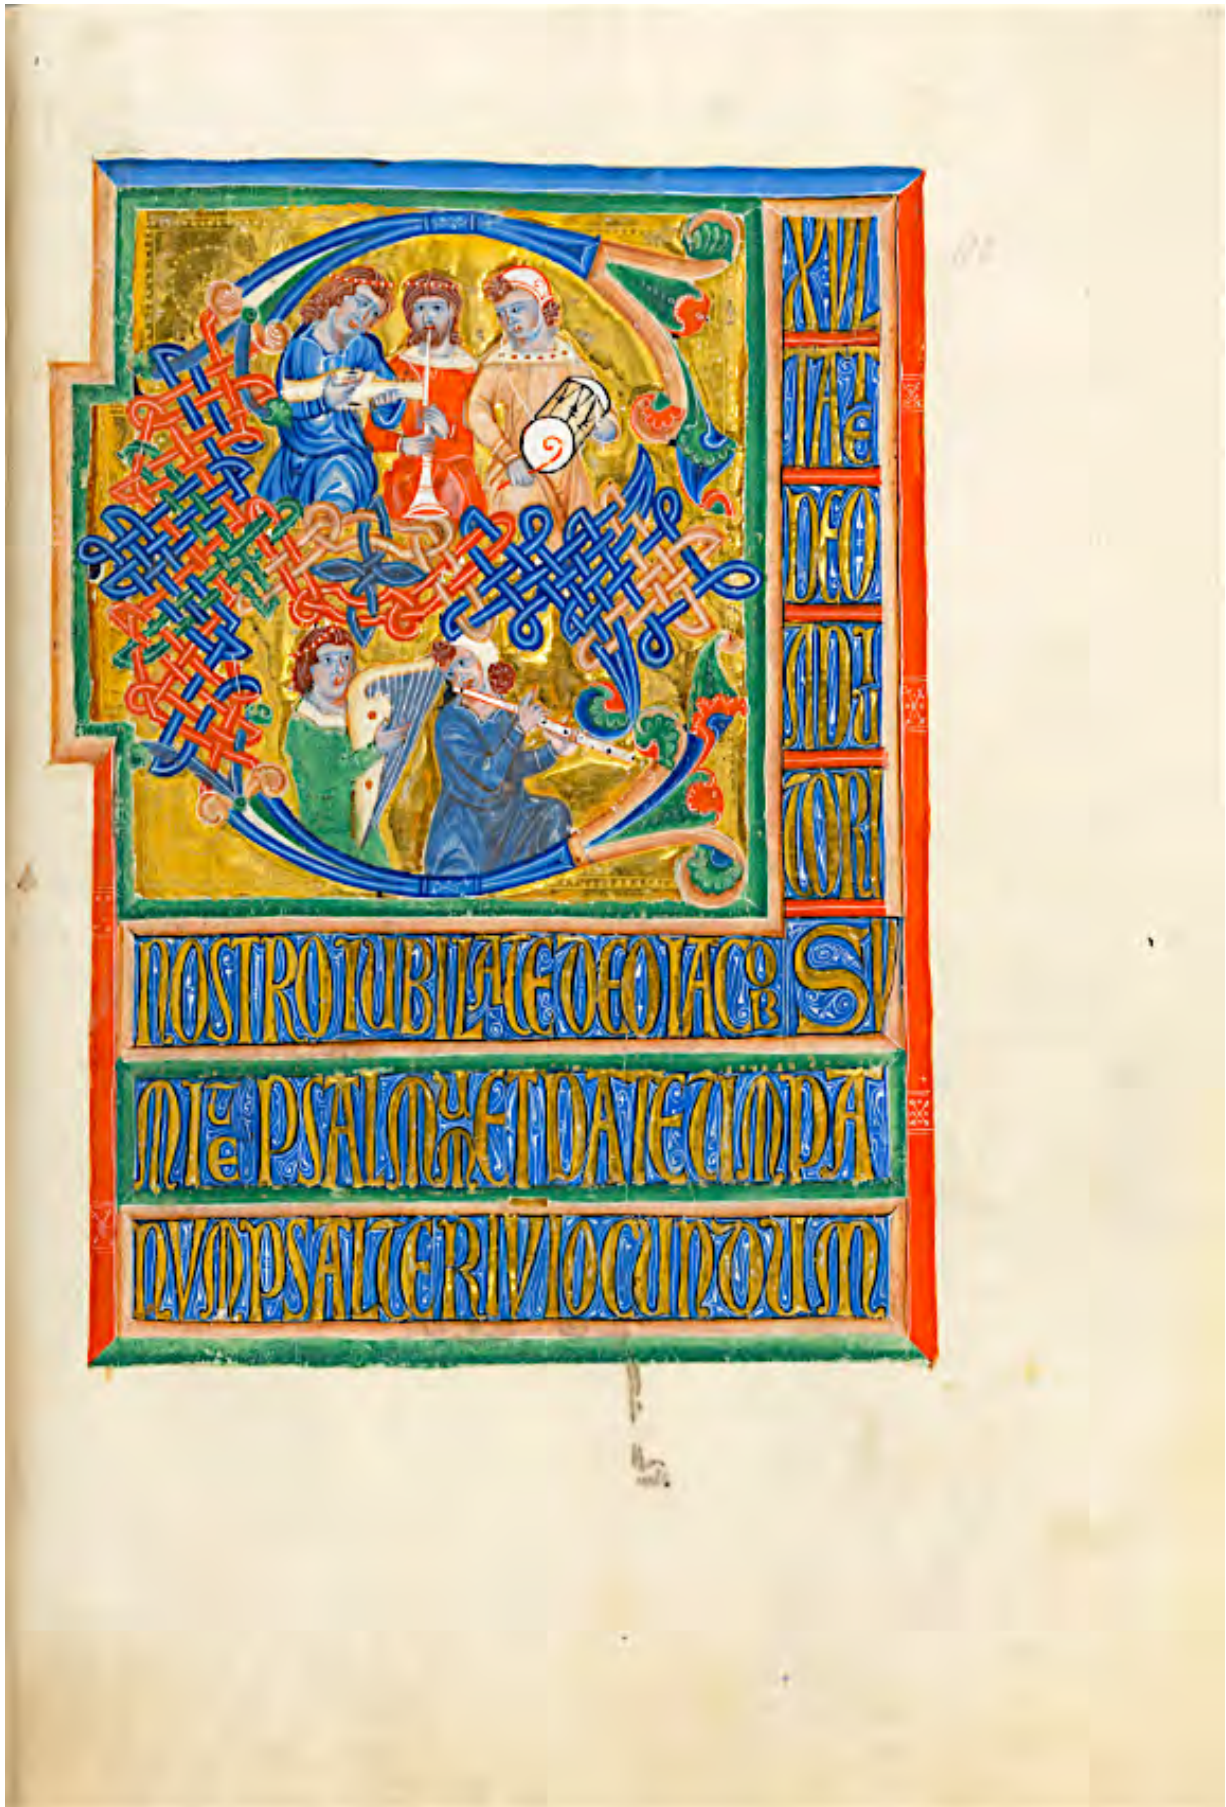 E
XVL
TATE
DEO
ADIU
TORI
NOSTRO IUBILATE DEO IACOB SU
MITE PSALMUM ET DATE TIMPA
NVM PSALTERIVM IOCUNDUM